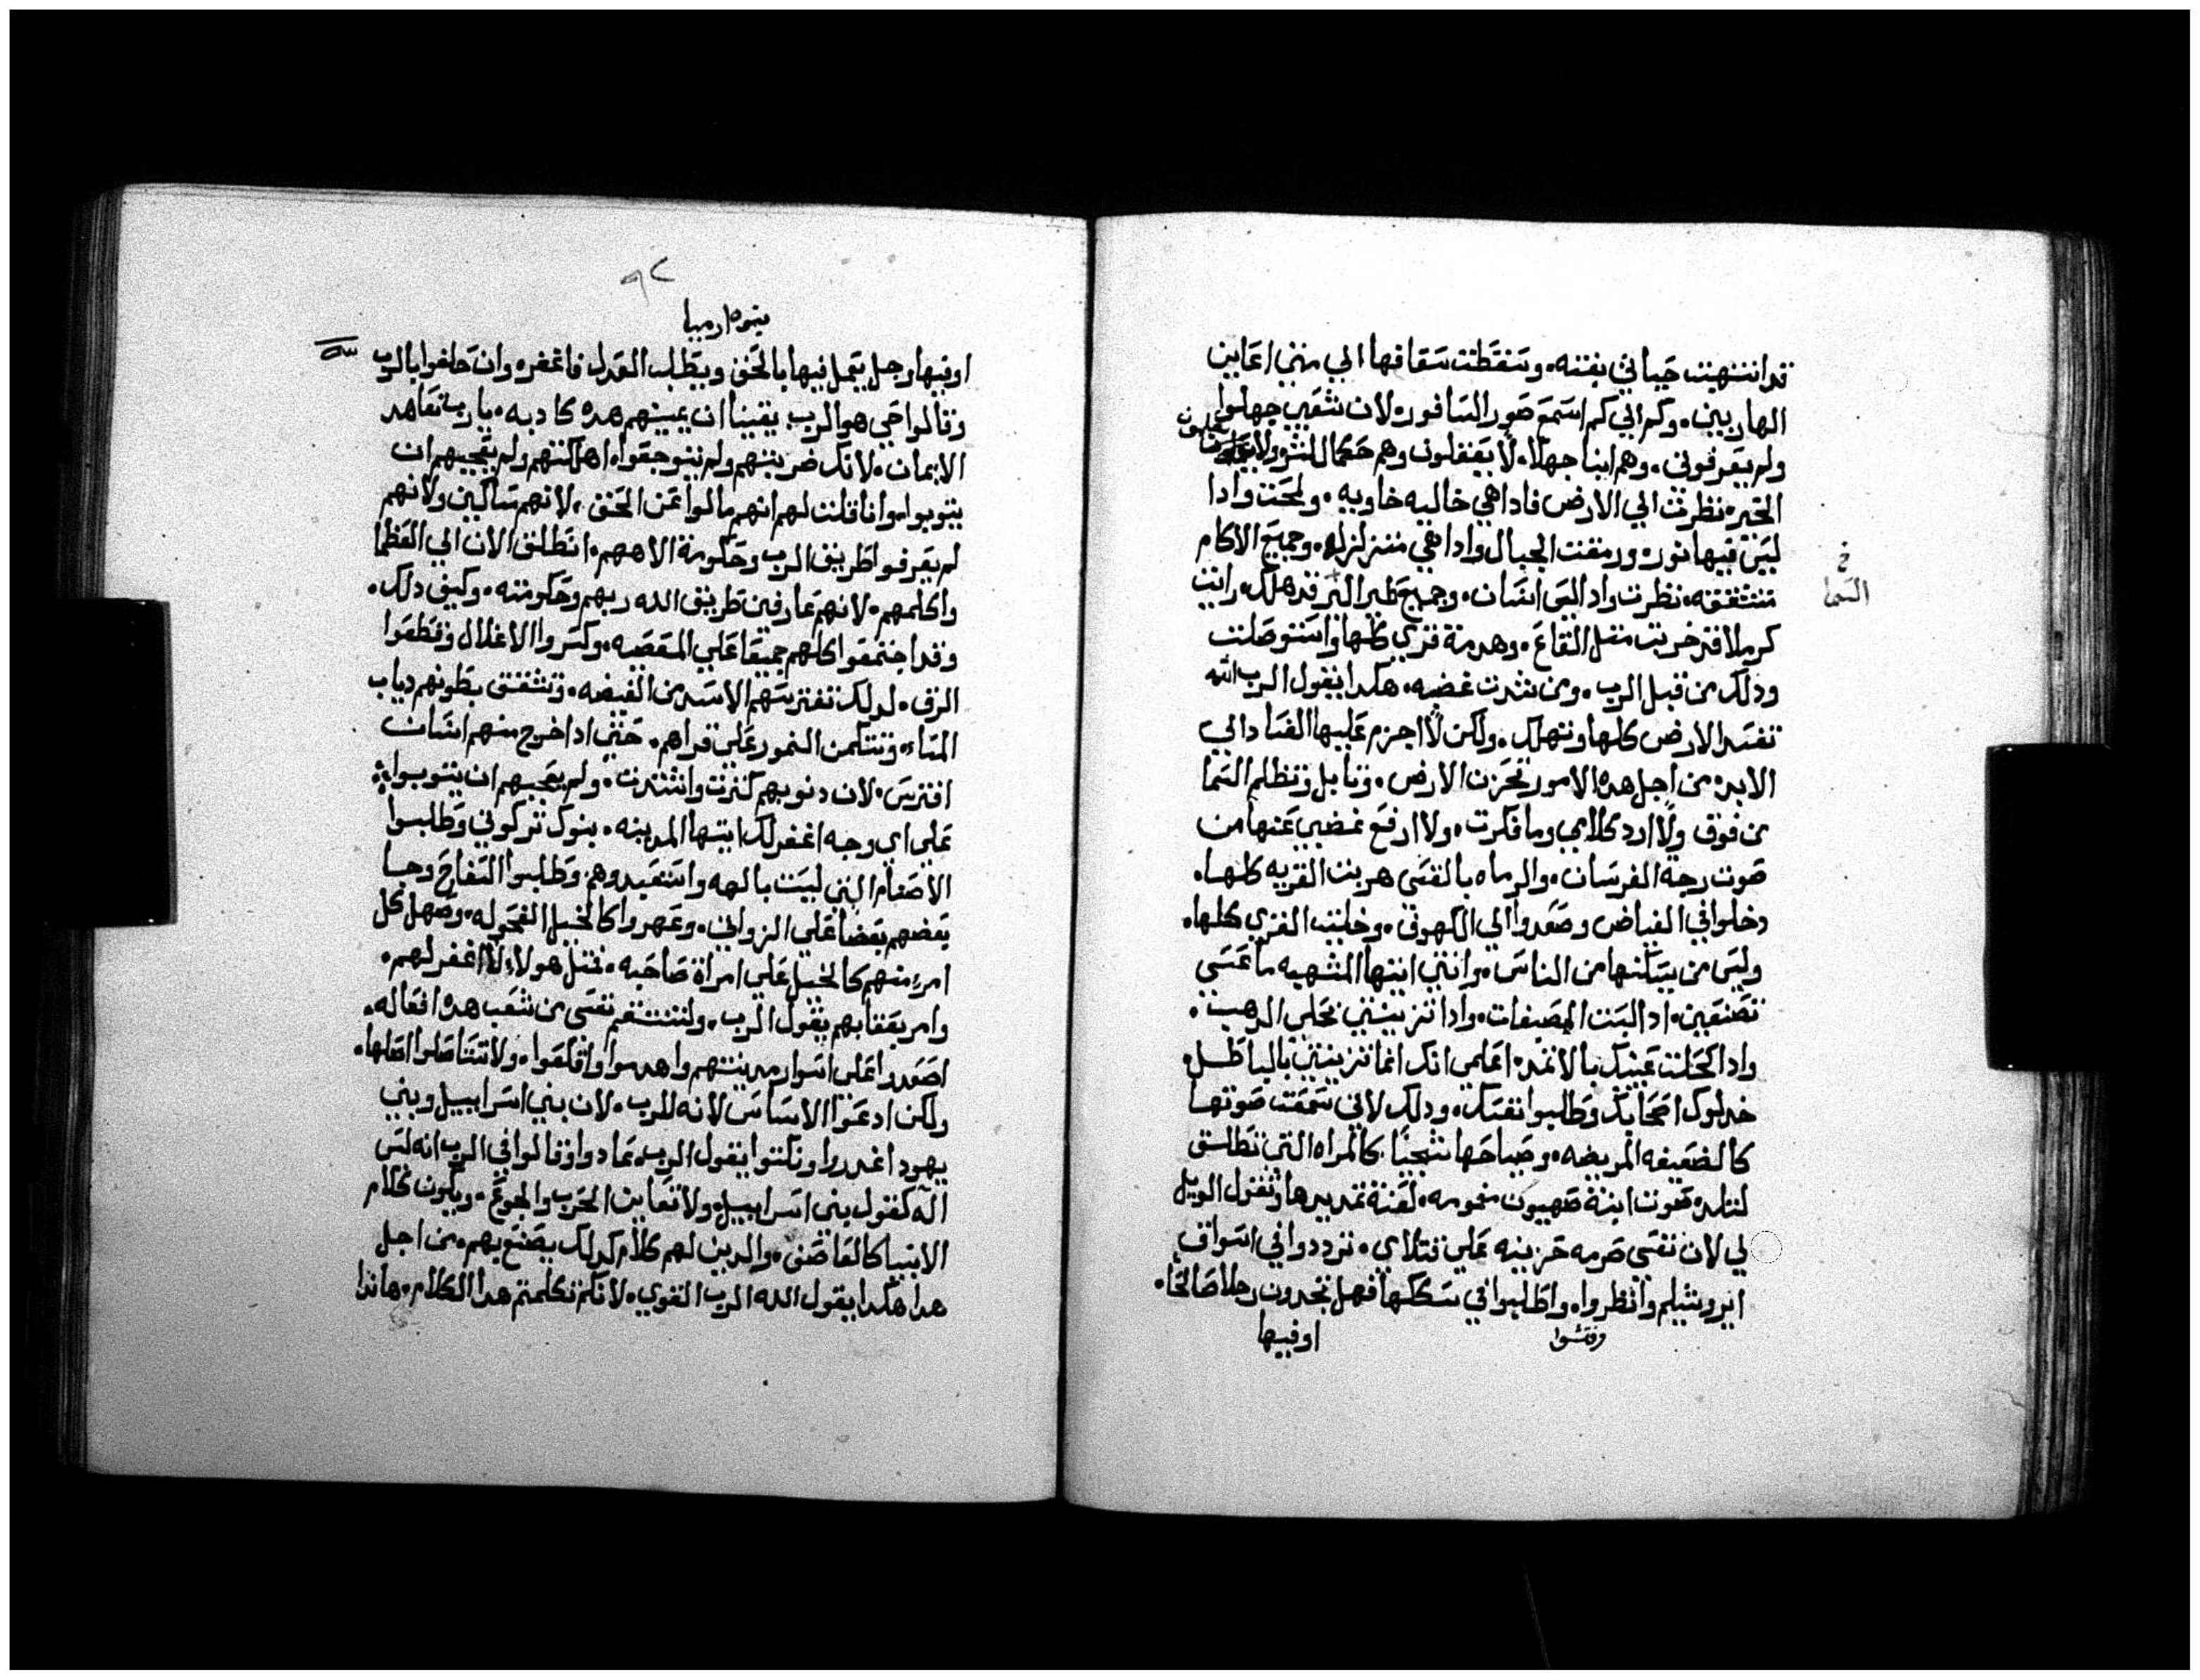 قد انتهبت خيامي بغته. وسقطت سقافها الي متي اعاين
الهاربين. وكم الي كم اسمع صور السافوره لان شعبي جهلوا
ولم يعرفوني. وهم ابنا جهلا. لا يعقلون وهم حكما للشر ولا يعلمون
الخير. نظرت الي الارض فادا هي خاليه خاويه. ولمحت وادا
ليس فيها نوره ورمقت الجبال وادا هي متزلزله. وجميع الاكام
متشققه. نظرت واد ليس انسان. وجميع طير البر قد هلك. رايت
كرملا قد خربت مثل القاع. وهدمة قري كلها واستوصلت
ودلك من قبل الرب. ومن شدت غضبه. هكدا يقول الرب الله
تفسد الارض كلها وتهلك. ولكن لا اجزم عليها الفساد الي
الابد. من اجل هده الامور تحزن الارض. وتابل وتظلم السما
من فوق ولا ارد كلامي وما فكرت. ولا ارفع غضبي عنها من
صوت رجة الفرسان. والرماه بالقسي هربت القريه كلها.
دخلوا في الغياض وصعدوا الي الكهوف. وخليت القري كلها.
وليس من يسكنها من الناس. وانتي ايتها المنتهبه ما عسي
تصنعين. اد البست المصبغات. وادا تزينتي بحلي الدهب.
وادا كحلت عينيك بالاثمد. اعلمي انك انما تزينتي بالباطل.
خدلوك اصحابك وطلبوا نفسك. ودلك لاني سمعت صوتها
كالضعيفه المريضه. وصياحها شجيا. كالمراه التي تطلق
لتلد. صوت ابنة صهيون مغمومه. لقنة تمد يدها وتقول الويل
لي لان نفسي صرمه حزينه علي قتلاي. ترددوا في اسواق
ايروشيلم وانظروا. واطلبوا في سككها فهل تجدون رجلا صالحا.
وفتشوا
اوفيها
خ
السما
٩٢
نبوه ارميا
اوفيها رجل يعمل فيها بالحق ويطلب العدل فاغفره وان حلفوا بالرب
وقالوا حي هو الرب. يقينا ان يمينهم هده كادبه. يارب تعاهد
الايمان. لانك ضربتهم ولم يتوجعوا. اهلكتهم ولم يعجبهم ان
يتوبوا. وانا قلت لهم انهم مالوا عن الحق. لانهم مساكين ولانهم
لم يعرفوا طريق الرب وحكومة الاههم. انطلق الان الي العظما
واكلمهم. لانهم عارفين طريق الله ربهم وحكومته. وكيف دلك.
وقد اجتمعوا كلهم جميعا علي المعصيه. وكسروا الاغلال وقطعوا
الرق. لدلك تفترسهم الاسد من الغيضه. وتشقق بطونهم دياب
المساء. وتتكمن النمور علي قراهم. حتي ادا خرج منهم انسان
افترس. لان دنوبهم كثرت واشتدت. ولم يعجبهم ان يتوبوا
علي اي وجه اغفر لك ايتها المدينه. بنوك تركوني وطلبوا
الاصنام التي ليست بالهه واستعبدوهم. وطلبوا السفاح وحسا
بعضهم بعضا علي الزواني. وعهروا كالخيل الفحوله. وصهل كل
امرء منهم كالخيل علي امراة صاحبه. فمثل هولاء لا اغفر لهم.
وامر يعقابهم يقول الرب. ولتنتقم نفسي من شعب هده افعاله.
اصعدوا علي اسوار مدينتهم واهدموا واقلعوا. ولا تستاصلوا اصلها.
ولكن ادعوا الاساس لانه للرب. لان بني اسراييل وبني
يهودا غدروا ونكتوا يقول الرب. عادوا وقالوا في الرب انه ليس
اله كقول بني اسراييل. ولا تعاين الحرب والجوع. ويكون كلام
الانبيا كالعاصف. والدين لهم كلام كدلك يصنع بهم. من اجل
هدا هكدا يقول الله الرب القوي. لانكم تكلمتم هدا الكلام. هاندا